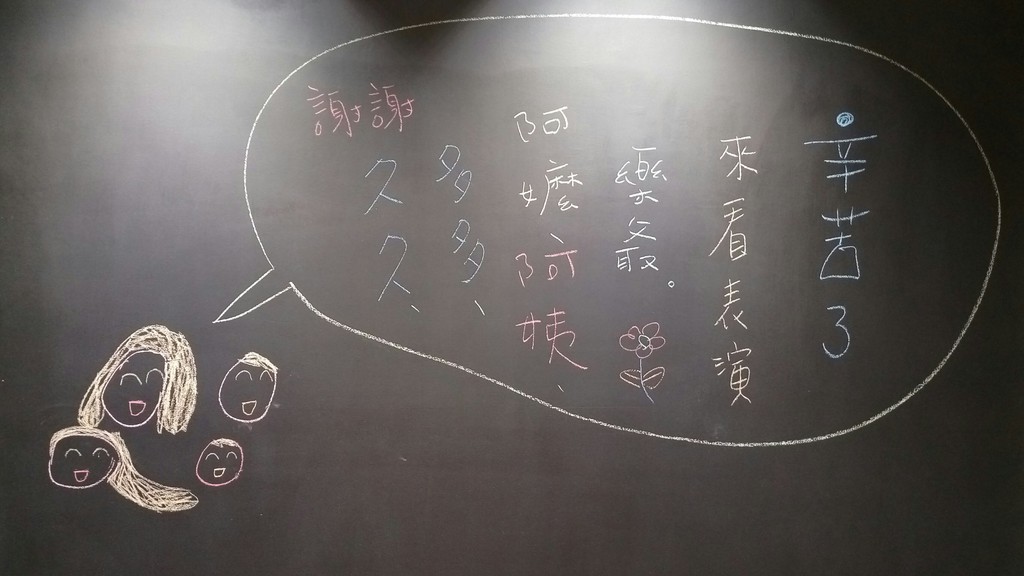 謝謝
久久、
多多、
阿嬤、阿姨、
樂爺。
來看表演
辛苦了